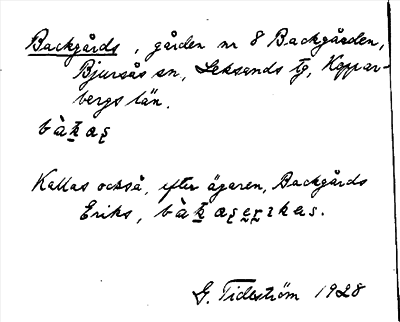 Backgårds, gården nr 8 Backgården,
Bjursås sn, Leksands tg, Koppar-
bergs län.
Kallas också, efter ägaren, Backgårds
Eriks,
G. Tideström 1928